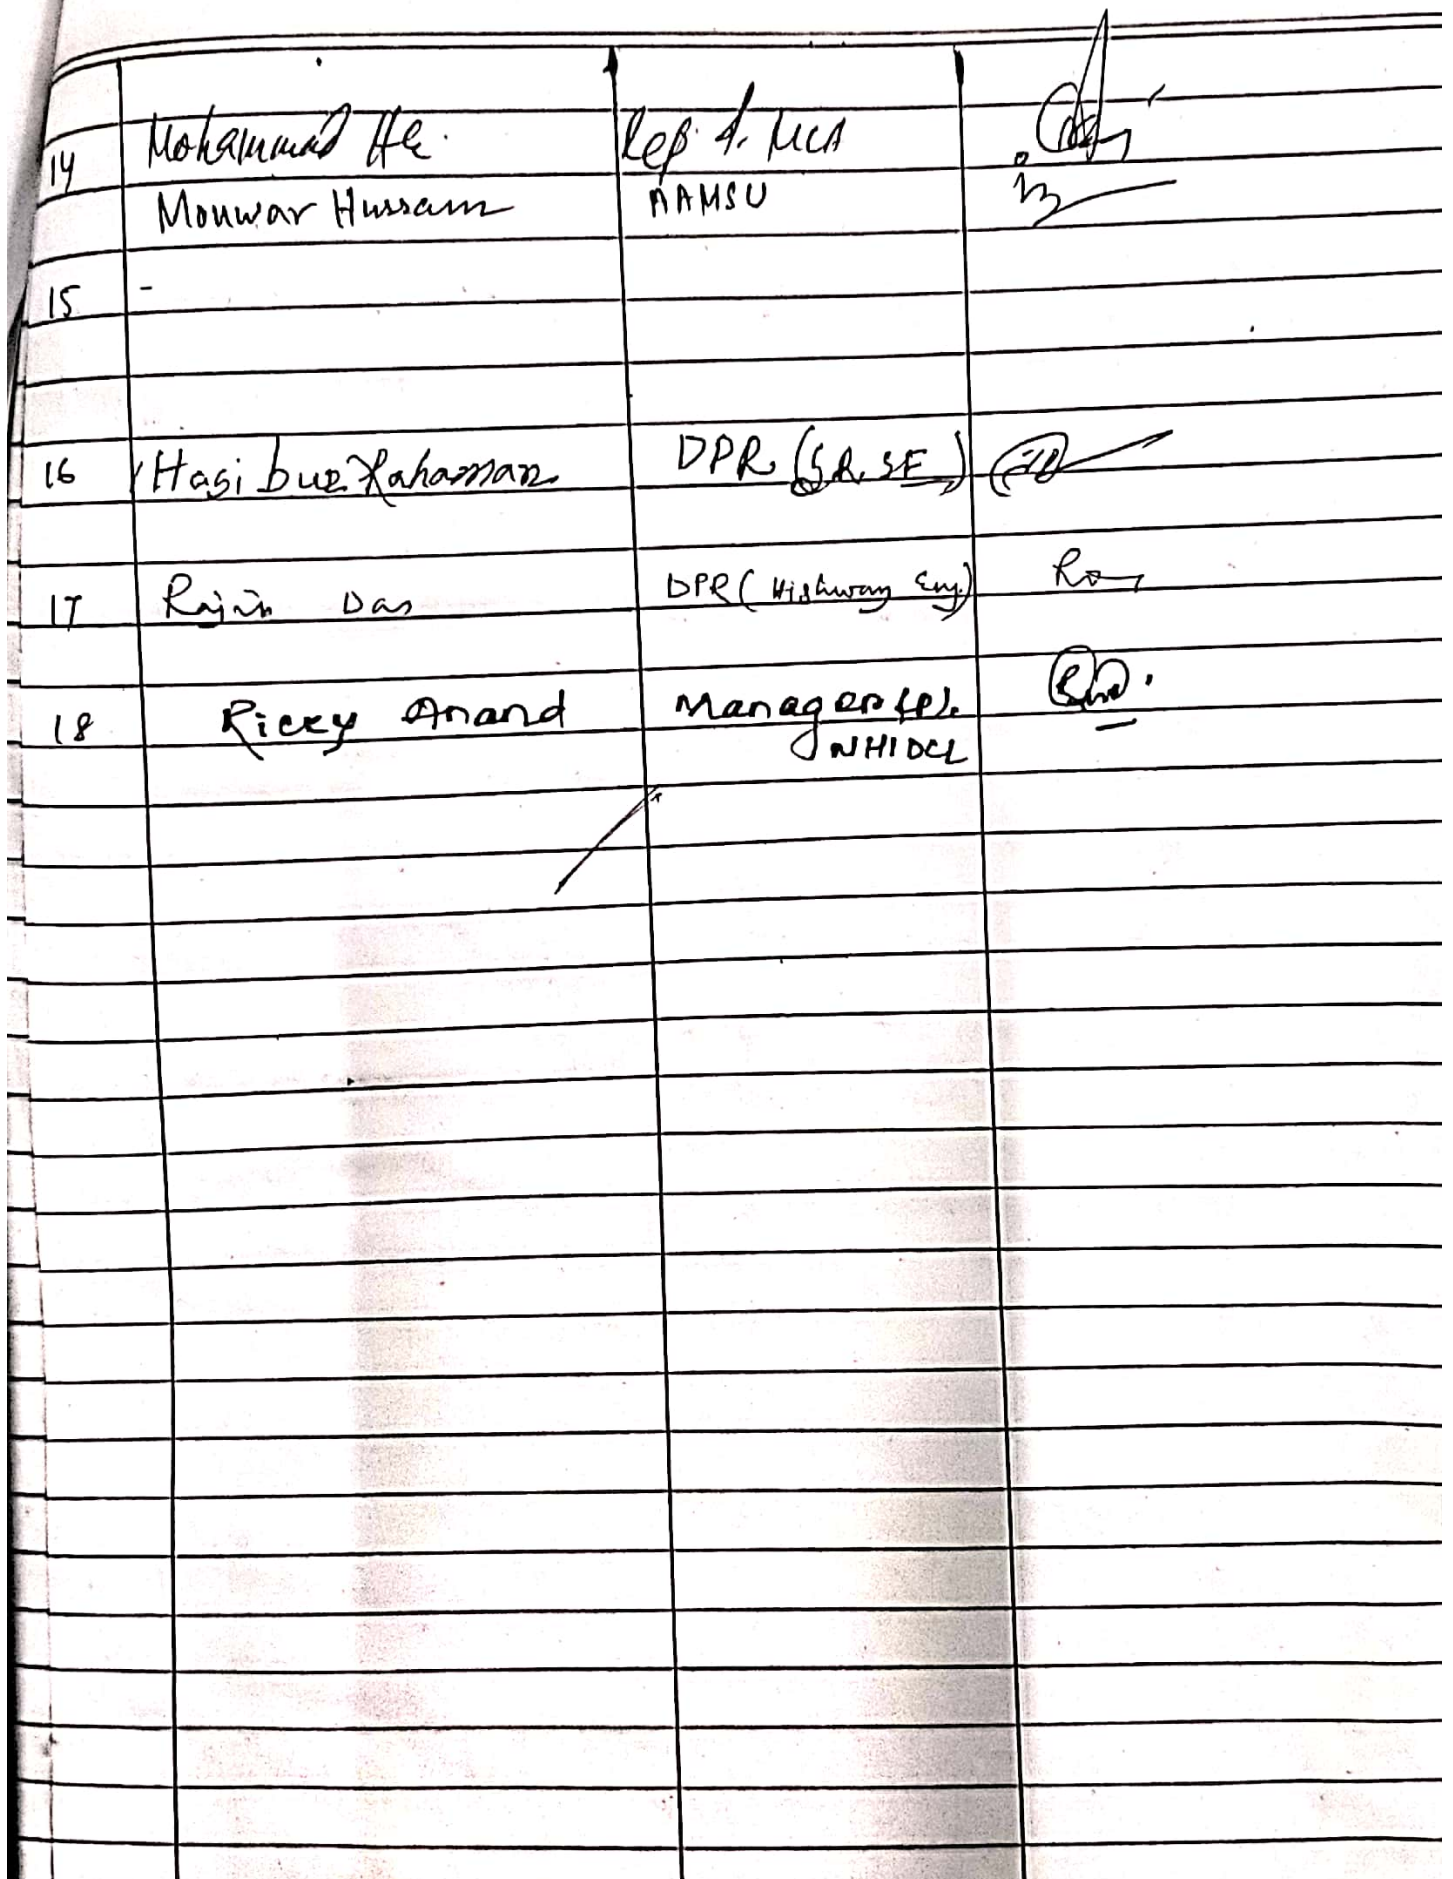 14 Mohammad Ali. Rep. of. MLA
Monwar Hussain AAMSU
15 -
16 Hasibur Rahaman DPR (SR. SE)
17 Rajib Das DPR (Highway Eng.)
18 Ricky Anand Manager (P).
NHIDCL